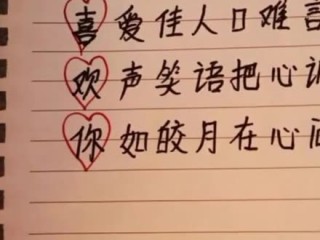 喜爱佳人口难言
欢声笑语把心
你如皎月在心